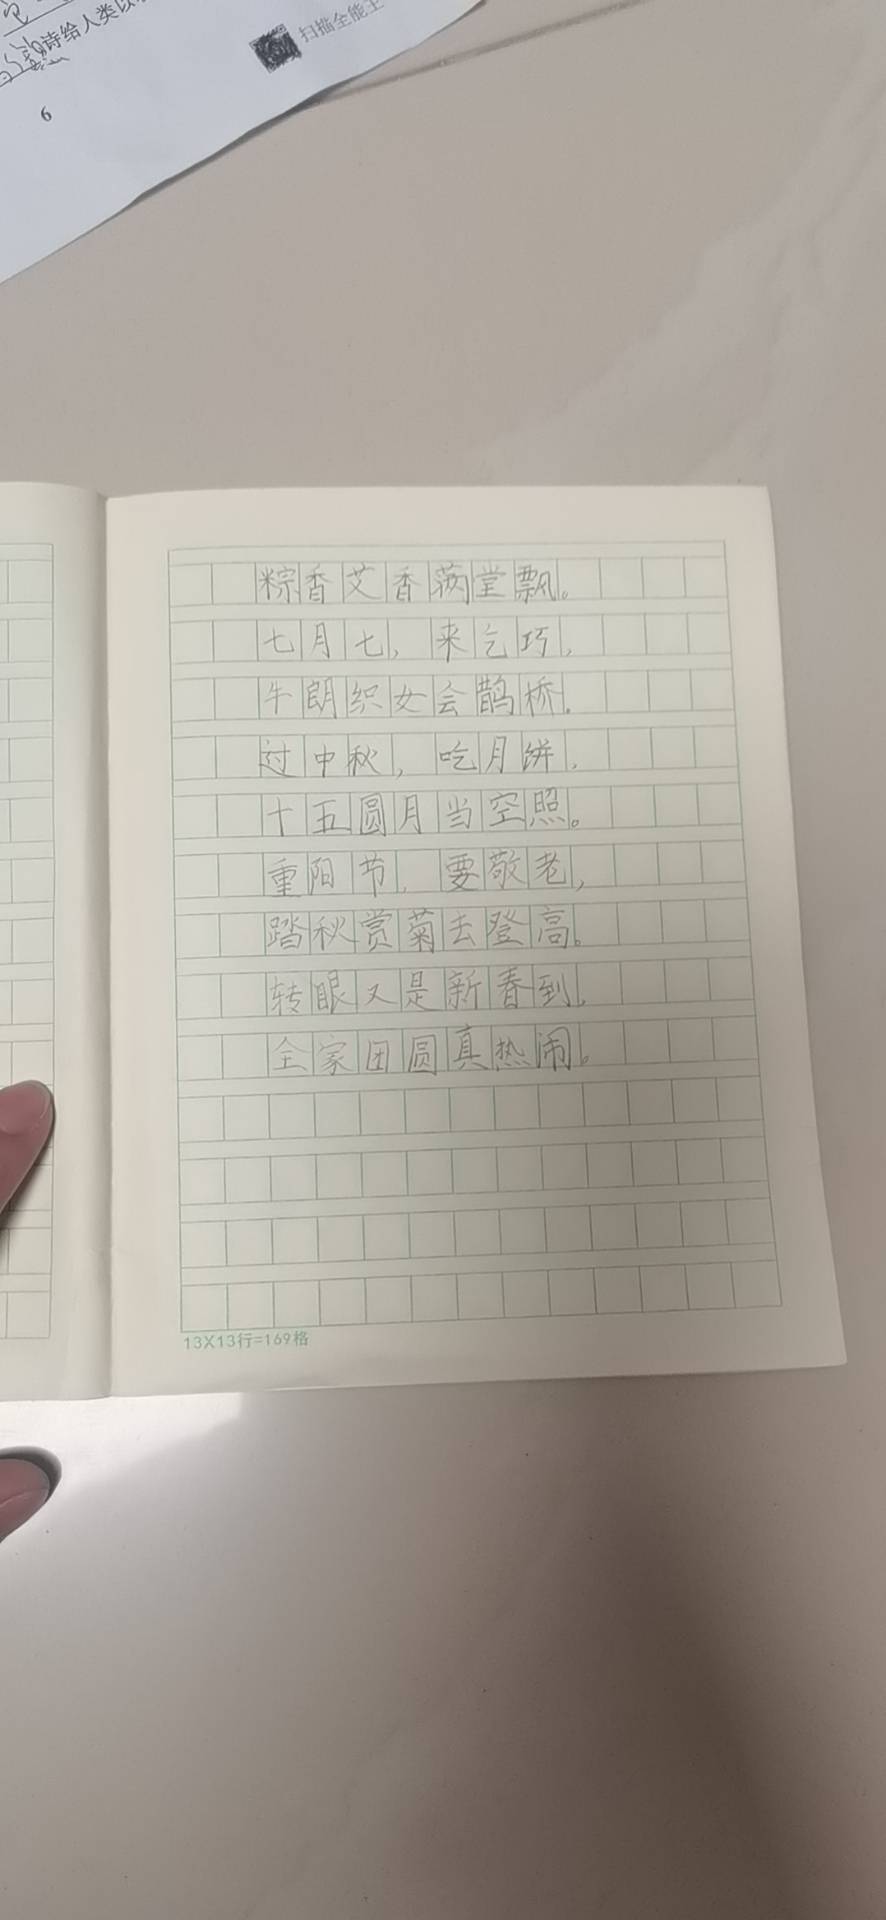 诗给人类以
扫描全能王
6
粽香艾香满堂飘。
七月七，来乞巧，
牛朗织女会鹊桥。
过中秋，吃月饼，
十五圆月当空照。
重阳节，要敬老，
踏秋赏菊去登高。
转眼又是新春到，
全家团圆真热闹。
13X13行=169格